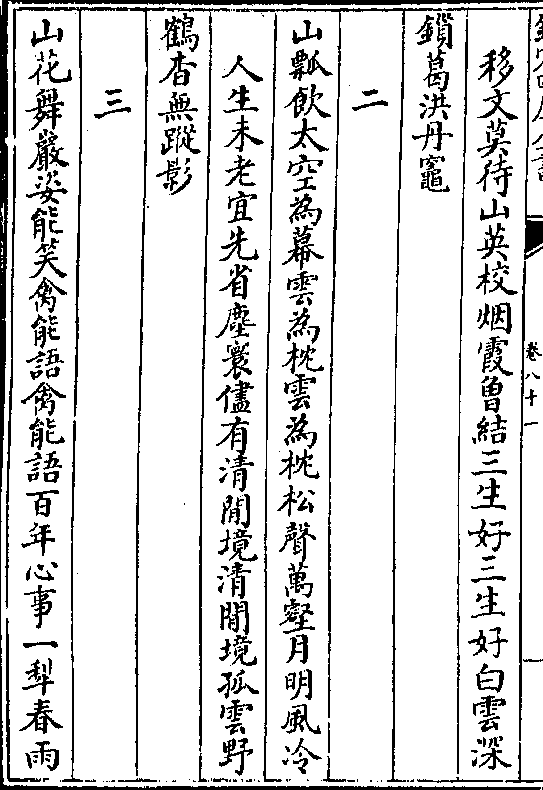 卷八十一
移文莫待山英校烟霞曽結三生好三生好白雲深
鎻葛洪丹竈
二
山瓢飲太空為幕雲為枕雲為枕松聲萬壑月明風冷
人生未老宜先省塵寰儘有清閒境清閒境孤雲野
鶴杳無蹤影
三
山花舞巖姿能笑禽能語禽能語百年心事一犁春雨